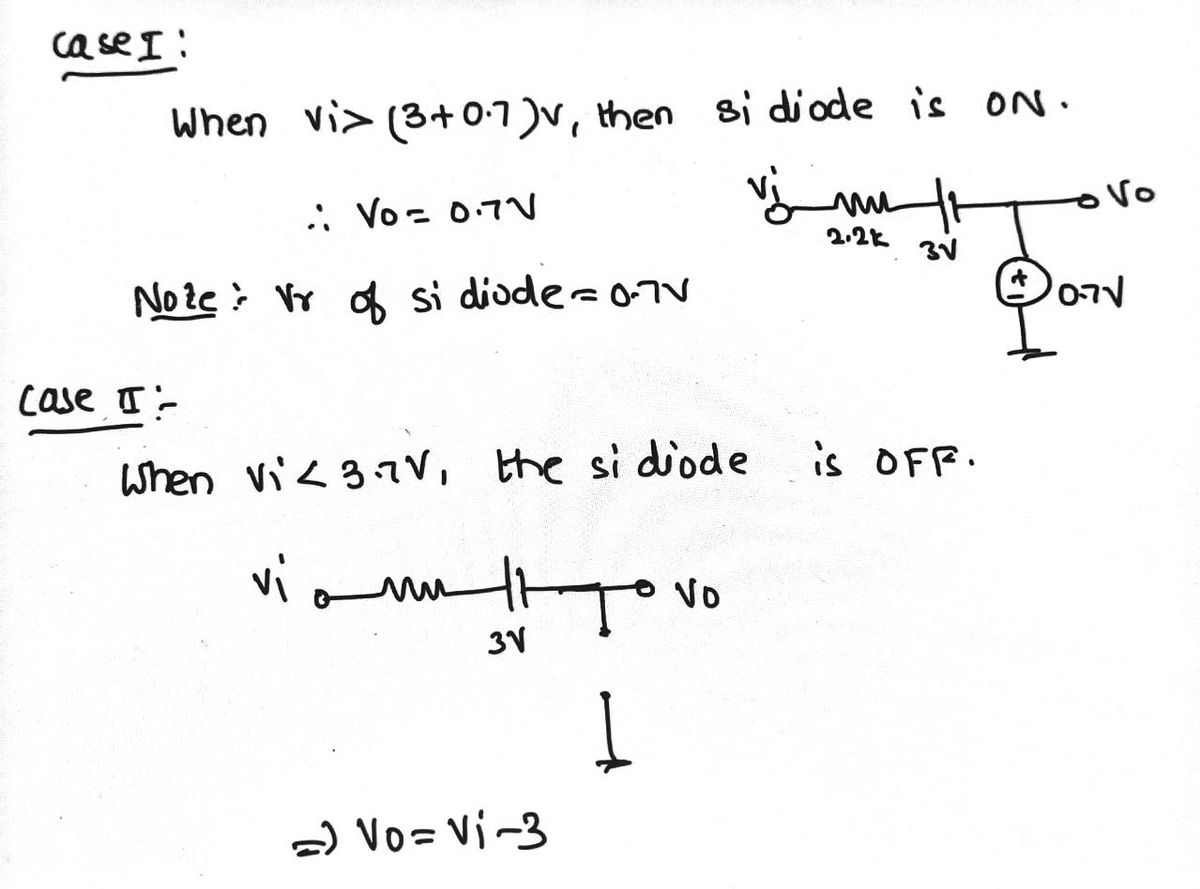 case I :
When Vi > (3+0.7)V, then si diode is ON.
∴ Vo = 0.7V
Vi
2.2k
3V
Vo
+
-
0.7V
Note :- Vr of si diode = 0.7V
case II :-
When Vi < 3.7V, the si diode is OFF.
Vi
3V
Vo
=) Vo = Vi-3